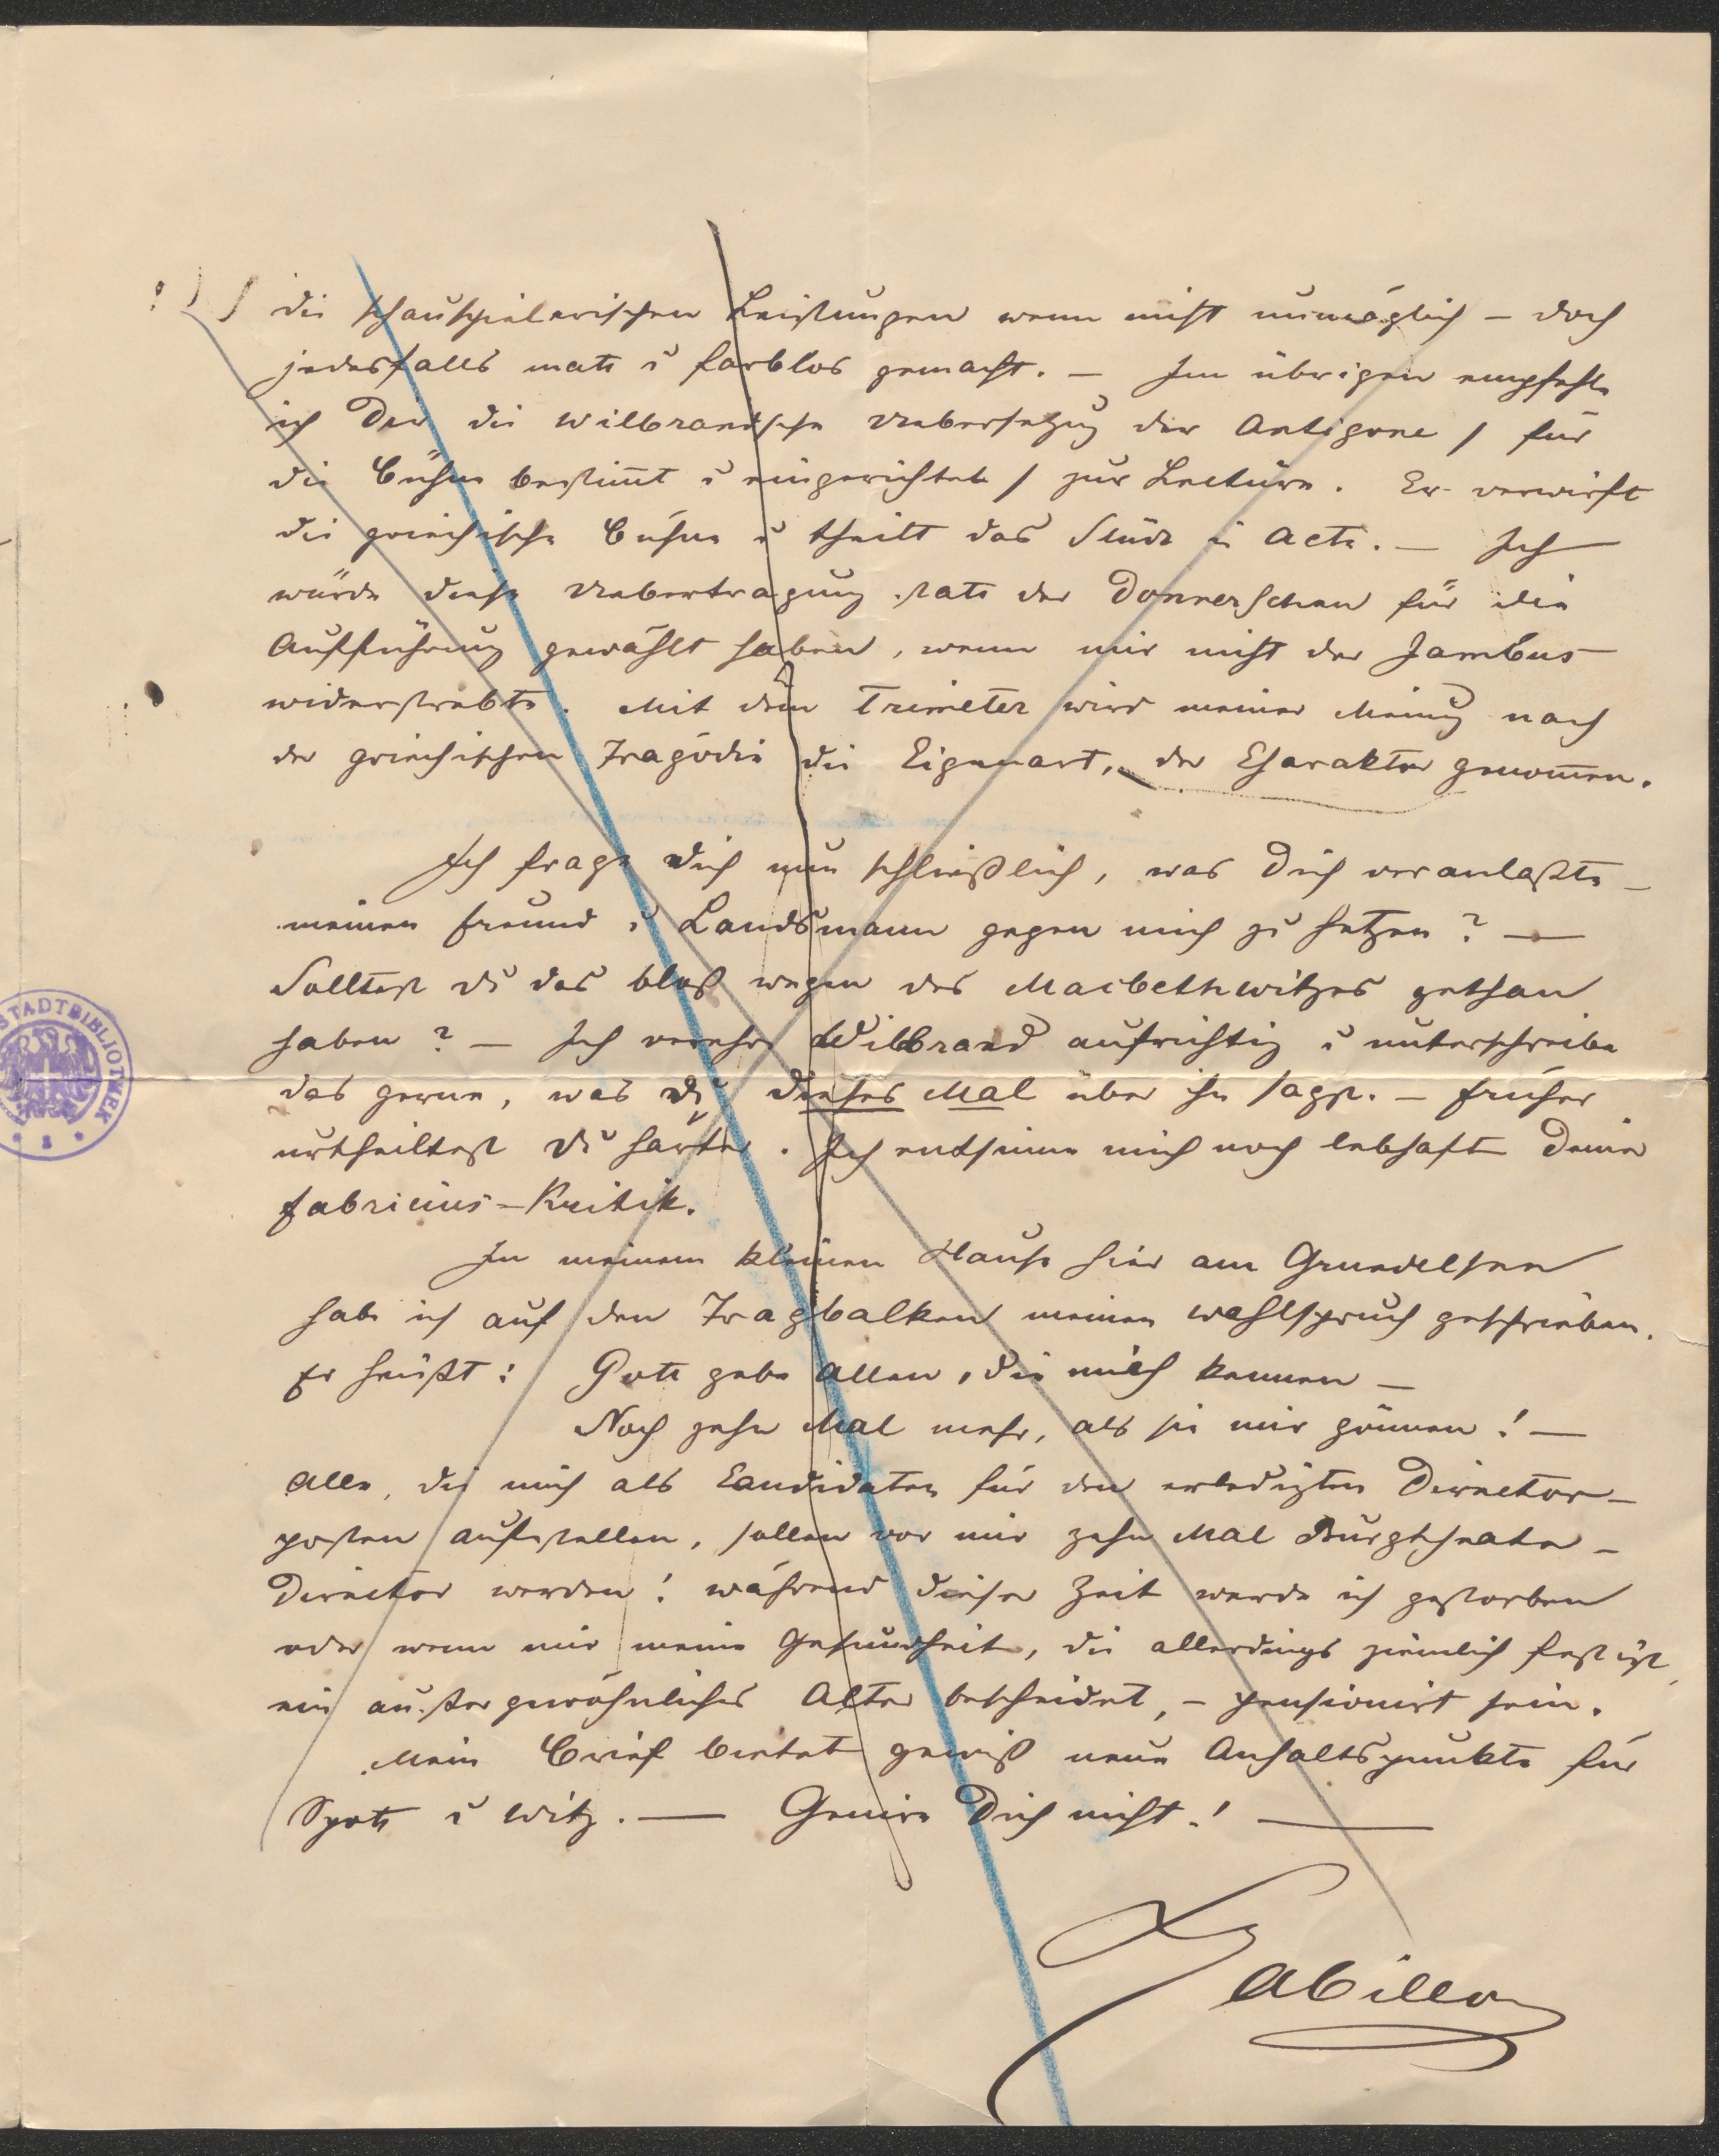 die schauspielerischen Leistungen wenn nicht unmöglich – doch
jedesfalls matt u farblos gemacht. – Im übrigen empfehle
ich Dir die Wilbrandsche Uebersetzug der Antigone / für
die Bühne bestim̅t u eingerichtet / zur Lectüre. Er verwirft
die griechische Bühne u theilt das Stück in Acte. – Ich
würde diese Uebertragung statt der Donnerschen für die
Aufführung gewählt haben, wenn mir nicht der Jambus
widerstrebte. Mit dem Trimeter wird meiner Meinug nach
der griechischen Tragödie die Eigenart, der Charakter genom̅en.
Ich frage Dich nun schließlich, was Dich veranlaßte –
meinen Freund u Landsmann gegen mich zu hetzen? –
Solltest Du das bloß wegen des Macbethwitzes gethan
haben? – Ich verehre Wilbrand aufrichtig u unterschreibe
das gerne, was Du dieses Mal über ihn sagst. – Früher
urtheiltest Du härter. Ich entsinne mich noch lebhaft Deiner
Fabricius-Kritik.
In meinem kleinen Hause hier am Grundelsee
habe ich auf den Tragbalken meinen Wahlspruch geschrieben.
Er heißt: Gott gebe Allen, die mich kennen –
Noch zehn Mal mehr, als sie mir gönnen! –
Alle, die mich als Candidaten für den erledigten Director-
posten aufstellen, sollen vor mir zehn Mal Burgtheater-
Director werden! während dieser Zeit werde ich gestorben
oder wenn mir meine Gesundheit, die allerdings ziemlich fest ist,
ein außergewöhnliches Alter bescheidet, – pensionirt sein.
Mein Brief bietet gewiß neue Anhaltspunkte für
Spott u Witz. – Genire Dich nicht! –
LGabillon
STADTBIBLIOTHEK